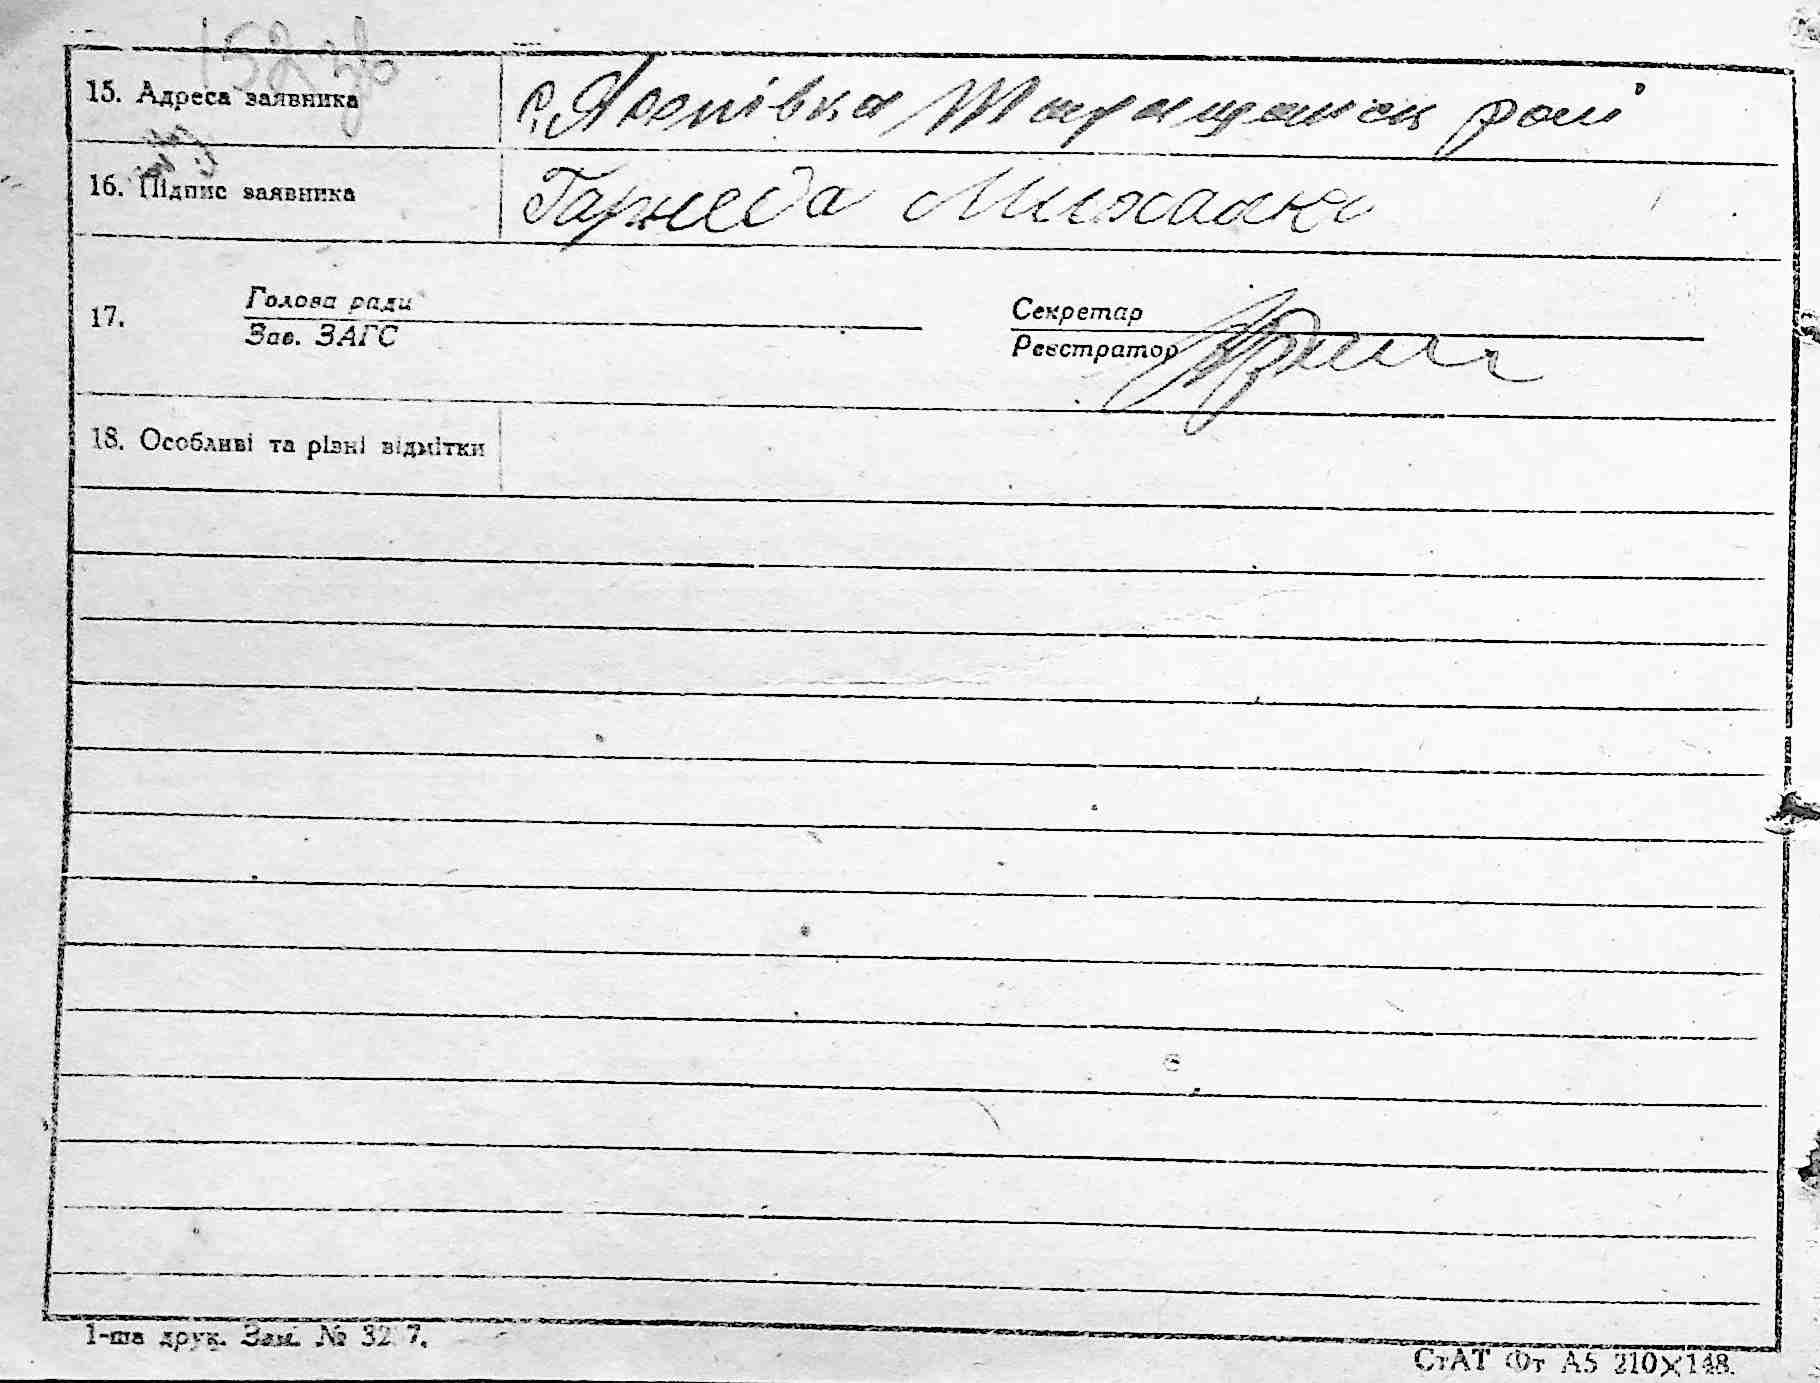 15. Адреса заявника с. Яхнівка Таращанск рай
16. Підпис заявника Гарнеда Михаил
Голова ради Секретар
17.
Зав. ЗАГС Реєстратор
18. Особливі та різні відмітки
1-ша друк. Зам. № 32 7.
СтАТ Фт А5 210×148.